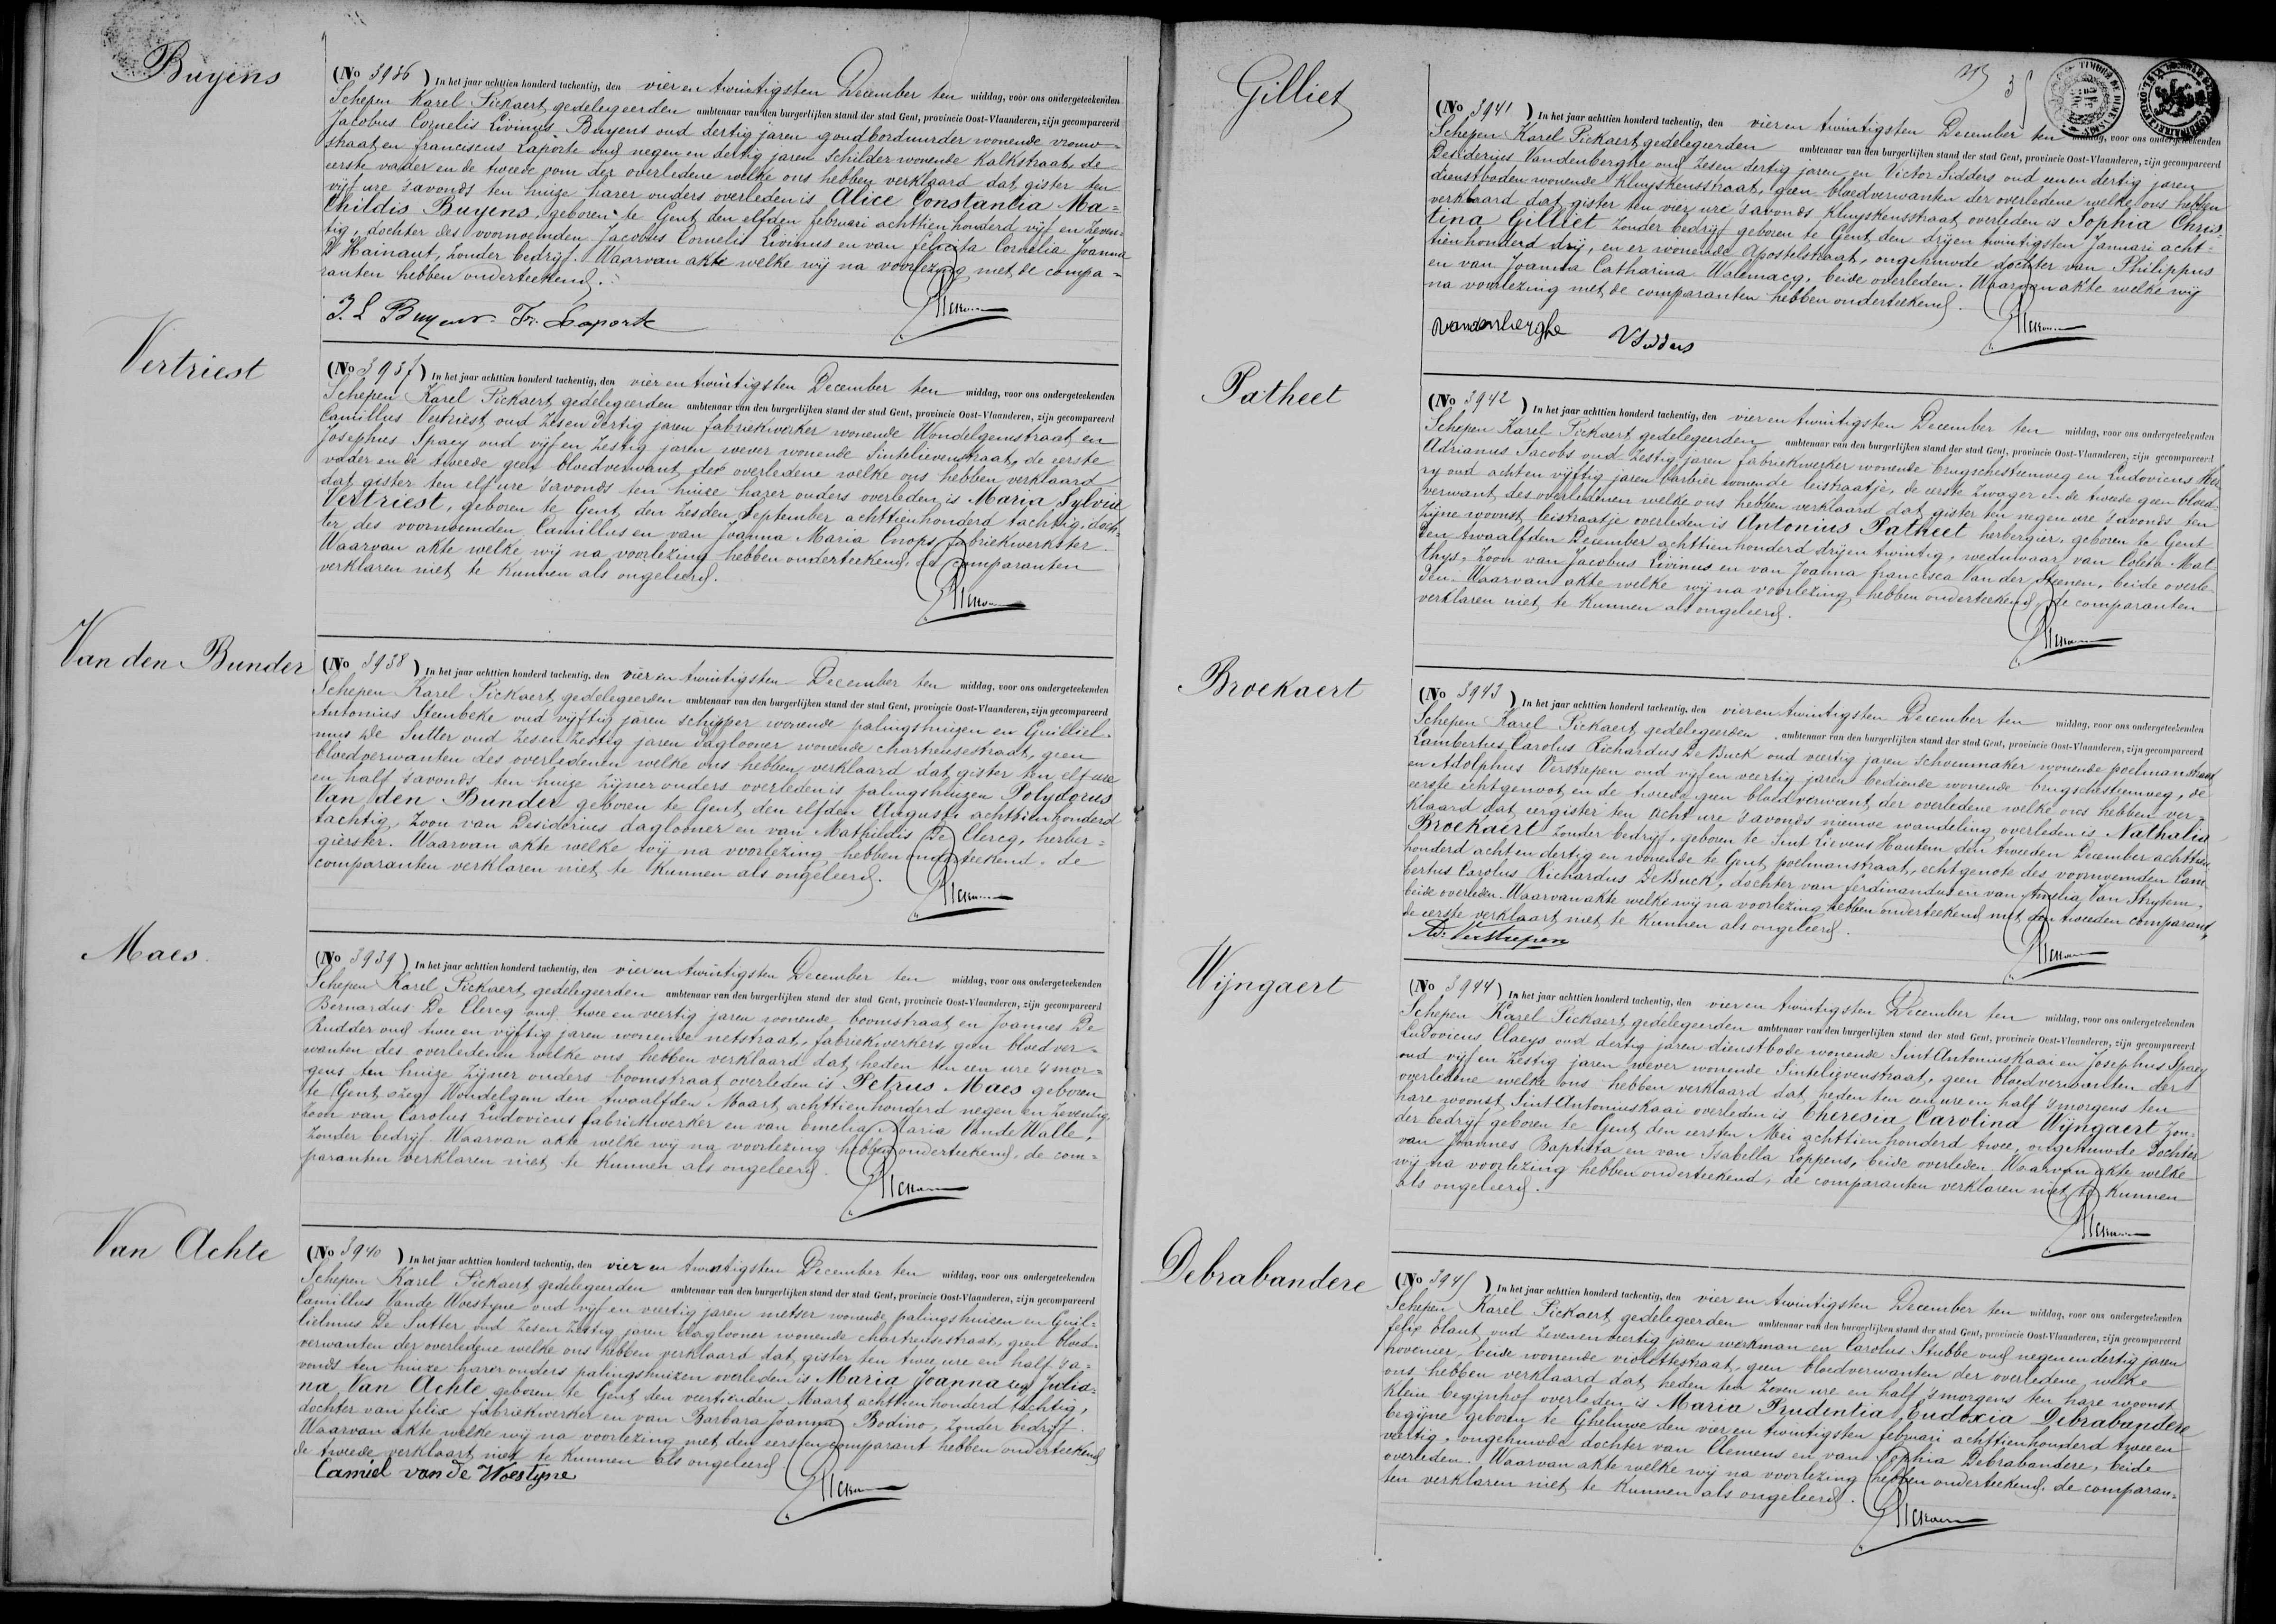 Buyens
(No 3936) In het jaar achttien honderd tachentig, den vier en twintigsten December ten middag, voor ons ondergeteekenden
Schepen Karel Pickaert gedelegeerden ambtenaar van den burgerlijken stand der stad Gent, provincie Oost-Vlaanderen, zijn gecompareerd
Jacobus Cornelis Livinus Buyens oud dertig jaren goudborduurder wonende vrouw-
straat en franciscus Laporte oud negen en dertig jaren Schilder wonende Kalkstraat, de
eerste vader en de tweede oom der overledene welke ons hebben verklaard dat gister ten
vijf ure s'avonds ten huize harer ouders overleden is Alice Constantia Ma=
thildis Buyens, geboren te Gent den elfden februari achttienhonderd vijf en zeven-
tig, dochter des voornoemden Jacobus Cornelis Livinus en van felicita Cornelia Joanna
D'Hainaut, zonder bedrijf. Waarvan akte welke wij na voorlezing met de compa=
ranten hebben onderteekend.
J. L. Buyens Fr. Laporte
Vertriest
(No 3937) In het jaar achttien honderd tachentig, den vier en twintigsten December ten middag, voor ons ondergeteekenden
Schepen Karel Pickaert gedelegeerden ambtenaar van den burgerlijken stand der stad Gent, provincie Oost-Vlaanderen, zijn gecompareerd
Camillus Vertriest oud zes en dertig jaren fabriekwerker wonende Wondelgemstraat en
Josephus Spaey oud vijf en zestig jaren wever wonende Sintelievenstraat, de eerste
vader en de tweede geen bloedverwant der overledene welke ons hebben verklaard
dat gister ten elf ure s'avonds ten huize harer ouders overleden is Maria Sylvie
Vertriest, geboren te Gent den zesden September achttienhonderd tachtig, doch-
ter des voornoemden Camillus en van Joanna Maria Cnops fabriekwerkster.
Waarvan akte welke wij na voorlezing hebben onderteekend, de comparanten
verklaren niet te kunnen als ongeleerd.
Van den Bunder
(No 3938) In het jaar achttien honderd tachentig, den vier en twintigsten December ten middag, voor ons ondergeteekenden
Schepen Karel Pickaert gedelegeerden ambtenaar van den burgerlijken stand der stad Gent, provincie Oost-Vlaanderen, zijn gecompareerd
Antonius Steenbeke oud vijftig jaren schipper wonende palingshuizen en Guilliel-
mus De Sutter oud zes en zestig jaren daglooner wonende chartreusestraat, geen
bloedverwanten des overledenen welke ons hebben verklaard dat gister ten elf ure
en half s'avonds ten huize zijner ouders overleden is palingshuizen Polydorus
Van den Bunder geboren te Gent den elfden Augusti achttienhonderd
tachtig, zoon van Desiderius daglooner en van Mathildis De Clercq, herber-
gierster. Waarvan akte welke wij na voorlezing hebben onderteekend. de
comparanten verklaren niet te kunnen als ongeleerd.
Maes
(No 3939) In het jaar achttien honderd tachentig, den vier en twintigsten December ten middag, voor ons ondergeteekenden
Schepen Karel Pickaert gedelegeerden ambtenaar van den burgerlijken stand der stad Gent, provincie Oost-Vlaanderen, zijn gecompareerd
Bernardus De Clercq oud twee en veertig jaren wonende boomstraat en Joannes De
Rudder oud twee en vijftig jaren wonende netstraat, fabriekwerkers, geen bloedver-
wanten des overledenen welke ons hebben verklaard dat heden ten een ure 's mor-
gens ten huize zijner ouders boomstraat overleden is Petrus Maes geboren
te Gent Wondelgem den twaalfden Maart achttienhonderd negen en zeventig
zoon van Carolus Ludovicus fabriekwerker en van Emelia Maria Vande Walle,
zonder bedrijf. Waarvan akte welke wij na voorlezing hebben onderteekend. de com-
paranten verklaren niet te kunnen als ongeleerd.
Van Achte
(No 3940) In het jaar achttien honderd tachentig, den vier en twintigsten December ten middag, voor ons ondergeteekenden
Schepen Karel Pickaert gedelegeerden ambtenaar van den burgerlijken stand der stad Gent, provincie Oost-Vlaanderen, zijn gecompareerd
Camillus Vande Woestyne oud vijf en veertig jaren metser wonende palingshuizen en Guil-
lielmus De Sutter oud zes en zestig jaren daglooner wonende chartreusestraat, geen bloed-
verwanten der overledene welke ons hebben verklaard dat gister ten twee ure en half s'a-
vonds ten huize harer ouders palingshuizen overleden is Maria Joanna Julia-
na Van Achte geboren te Gent den veertienden Maart achttienhonderd tachtig,
dochter van felix fabriekwerker en van Barbara Joanna Bodino, zonder bedrijf.
Waarvan akte welke wij na voorlezing met den eersten comparant hebben onderteekend
de tweede verklaart niet te kunnen als ongeleerd
Camiel van de Woestyne
Gilliet
(No 3941) In het jaar achttien honderd tachentig, den vier en twintigsten December ten middag, voor ons ondergeteekenden
Schepen Karel Pickaert gedelegeerden ambtenaar van den burgerlijken stand der stad Gent, provincie Oost-Vlaanderen, zijn gecompareerd
Desiderius Vandenberghe oud zes en dertig jaren en Victor Sidders oud een en dertig jaren
dienstboden wonende Kluyskensstraat, geen bloedverwanten der overledene welke ons hebben
verklaard dat gister ten vier ure s'avonds Kluyskensstraat overleden is Sophia Chris-
tina Gilliet zonder bedrijf geboren te Gent den drij en twintigsten Januari acht-
tienhonderd drij, en er wonende Apostelstraat, ongehuwde dochter van Philippus
en van Joanna Catharina Walemacq, beide overleden. Waarvan akte welke wij
na voorlezing met de comparanten hebben onderteekend.
Vandenberghe V Sidders
Patheet
(No 3942) In het jaar achttien honderd tachentig, den vier en twintigsten December ten middag, voor ons ondergeteekenden
Schepen Karel Pickaert gedelegeerden ambtenaar van den burgerlijken stand der stad Gent, provincie Oost-Vlaanderen, zijn gecompareerd
Adrianus Jacobs oud zestig jaren fabriekwerker wonende brugschesteenweg en Ludovicus
ry oud acht en vijftig jaren barbier wonende leistraatje, de eerste zwager en de tweede geen bloed-
verwant des overledenen welke ons hebben verklaard dat gister ten negen ure s'avonds ten
zijne woonst leistraatje overleden is Antonius Patheet herbergier, geboren te Gent
den twaalfden December achttienhonderd drij en twintig, weduwaar van Coleta Mat-
thys, zoon van Jacobus Livinus en van Joanna francisca Van der Steenen, beide overle-
den. Waarvan akte welke wij na voorlezing hebben onderteekend, de comparanten
verklaren niet te kunnen als ongeleerd.
Broekaert
(No 3943) In het jaar achttien honderd tachentig, den vier en twintigsten December ten middag, voor ons ondergeteekenden
Schepen Karel Pickaert gedelegeerden ambtenaar van den burgerlijken stand der stad Gent, provincie Oost-Vlaanderen, zijn gecompareerd
Lambertus Carolus Richardus De Buck oud veertig jaren Schoenmaker wonende poelmanstraat
en Adolphus Verstrepen oud vijf en veertig jaren bediende wonende brugschesteenweg, de
eerste echtgenoot en de tweede geen bloedverwant der overledene welke ons hebben ver-
klaard dat eergister ten acht ure s'avonds nieuwe wandeling overleden is Nathalia
Broekaert zonder bedrijf, geboren te Sint Lievens Hautem den tweeden December achttien-
honderd acht en dertig en wonende te Gent poelmanstraat, echtgenote des voornoemden Lam-
bertus Carolus Richardus De Buck, dochter van ferdinandus en van Amelia Van Strytem,
beide overleden. Waarvan akte welke wij na voorlezing hebben onderteekend met den tweeden comparant,
de eerste verklaart niet te kunnen als ongeleerd.
Ad. Verstrepen
Wijngaert
(No 3944) In het jaar achttien honderd tachentig, den vier en twintigsten December ten middag, voor ons ondergeteekenden
Schepen Karel Pickaert gedelegeerden ambtenaar van den burgerlijken stand der stad Gent, provincie Oost-Vlaanderen, zijn gecompareerd
Ludovicus Claeys oud dertig jaren dienstbode wonende Sint Antoniuskaai en Josephus Spaey
oud vijf en zestig jaren wever wonende Sintelievenstraat, geen bloedverwanten der
overledene welke ons hebben verklaard dat heden ten een ure en half 's morgens ten
hare woonst Sint Antoniuskaai overleden is Theresia Carolina Wijngaert zon-
der bedrijf geboren te Gent den eersten Mei achttienhonderd twee, ongehuwde dochter
van Joannes Baptista en van Isabella Loppens, beide overleden. Waarvan akte welke
wij na voorlezing hebben onderteekend, de comparanten verklaren niet te kunnen
als ongeleerd.
Debrabandere
(No 3945) In het jaar achttien honderd tachentig, den vier en twintigsten December ten middag, voor ons ondergeteekenden
Schepen Karel Pickaert gedelegeerden ambtenaar van den burgerlijken stand der stad Gent, provincie Oost-Vlaanderen, zijn gecompareerd
felix Elaut oud zeven en veertig jaren werkman en Carolus Stubbe oud negen en dertig jaren
hovenier, beide wonende violettestraat, geen bloedverwanten der overledene, welke
ons hebben verklaard dat heden ten zeven ure en half 's morgens ten hare woonst
klein begijnhof overleden is Maria Prudentia Eudoxia Debrabandere
begijne geboren te Gheluwe den vier en twintigsten februari achttienhonderd twee en
veertig, ongehuwde dochter van Clemens en van Sophia Debrabandere, beide
overleden. Waarvan akte welke wij na voorlezing hebben onderteekend. de comparan-
ten verklaren niet te kunnen als ongeleerd.